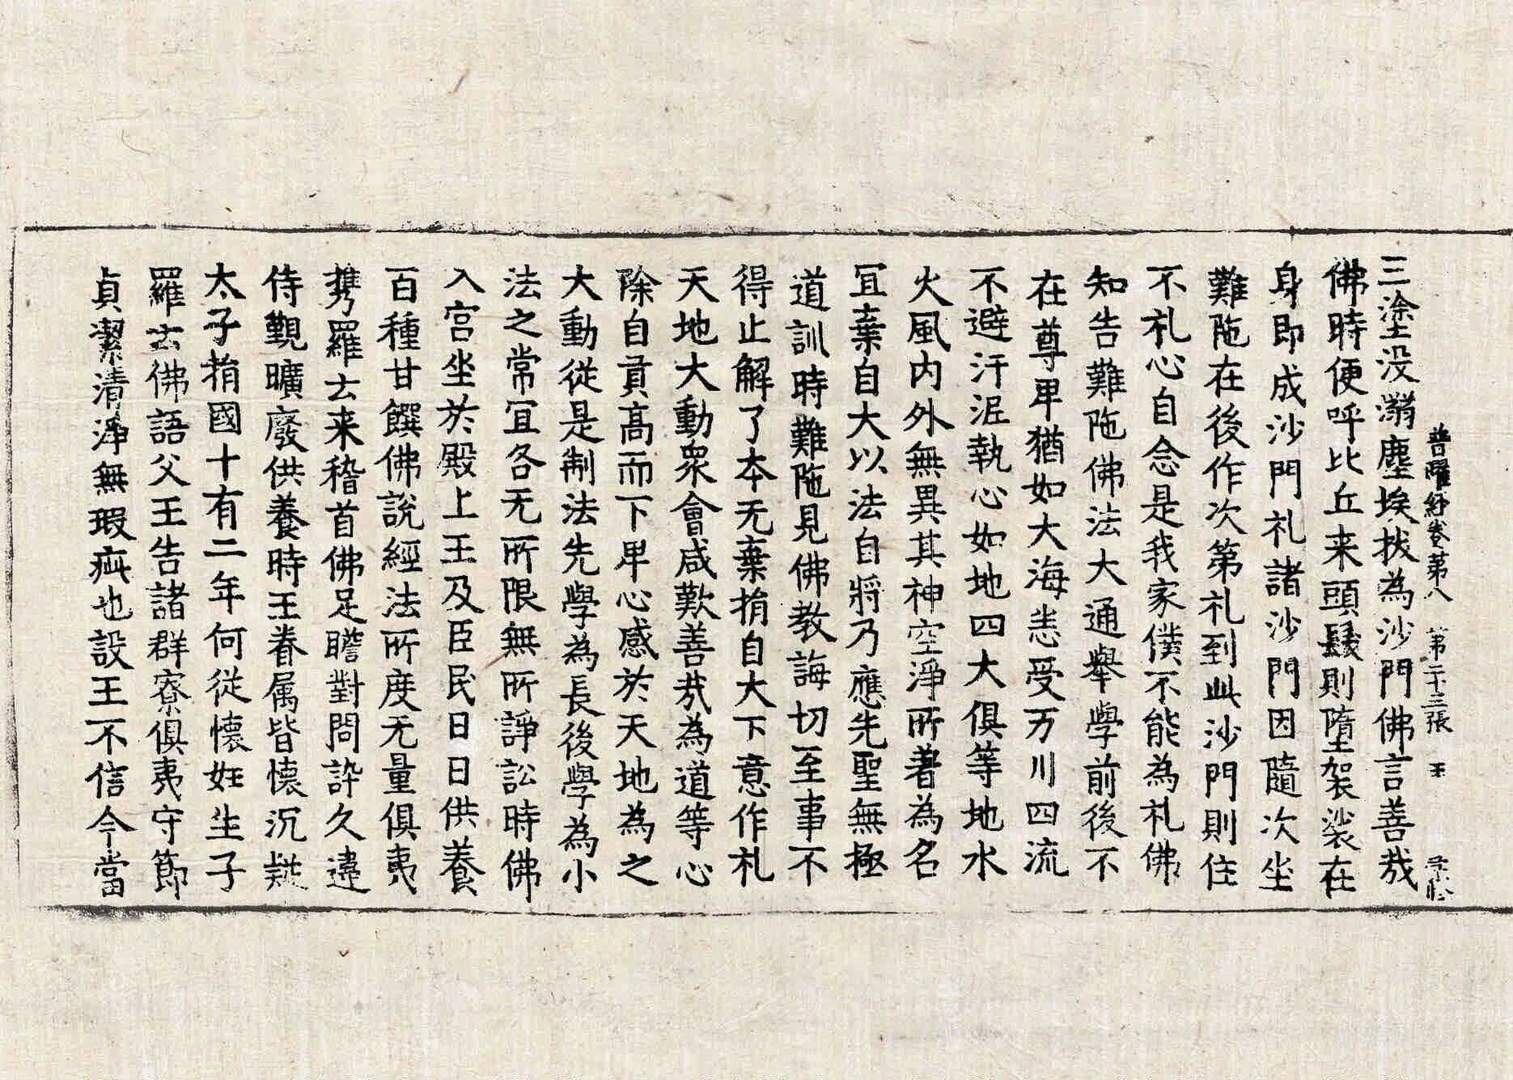 普曜經卷第八 第二十三張 王
三塗没溺塵埃拔為沙門佛言善哉
佛時便呼比丘来頭鬚則墮袈裟在
身即成沙門礼諸沙門因隨次坐
難陁在後作次第礼到此沙門則住
不礼心自念是我家僕不能為礼佛
知告難陁佛法大通舉學前後不
在尊卑猶如大海悉受万川四流
不避汙泥執心如地四大俱等地水
火風内外無異其神空淨所著為名
冝棄自大以法自將乃應先聖無極
道訓時難陁見佛教誨切至事不
得止解了本无棄捐自大下意作礼
天地大動眾會咸歎善哉為道等心
除自貢高而下卑心感於天地為之
大動從是制法先學為長後學為小
法之常冝各无所限無所諍訟時佛
入宫坐於殿上王及臣民日日供養
百種甘饌佛說經法所度无量俱夷
携羅云来稽首佛足瞻對問訊久違
侍覲曠廢供養時王眷属皆懷沉疑
太子捐國十有二年何從懷妊生子
羅云佛語父王告諸群寮俱夷守節
貞潔清淨無瑕疵也設王不信今當